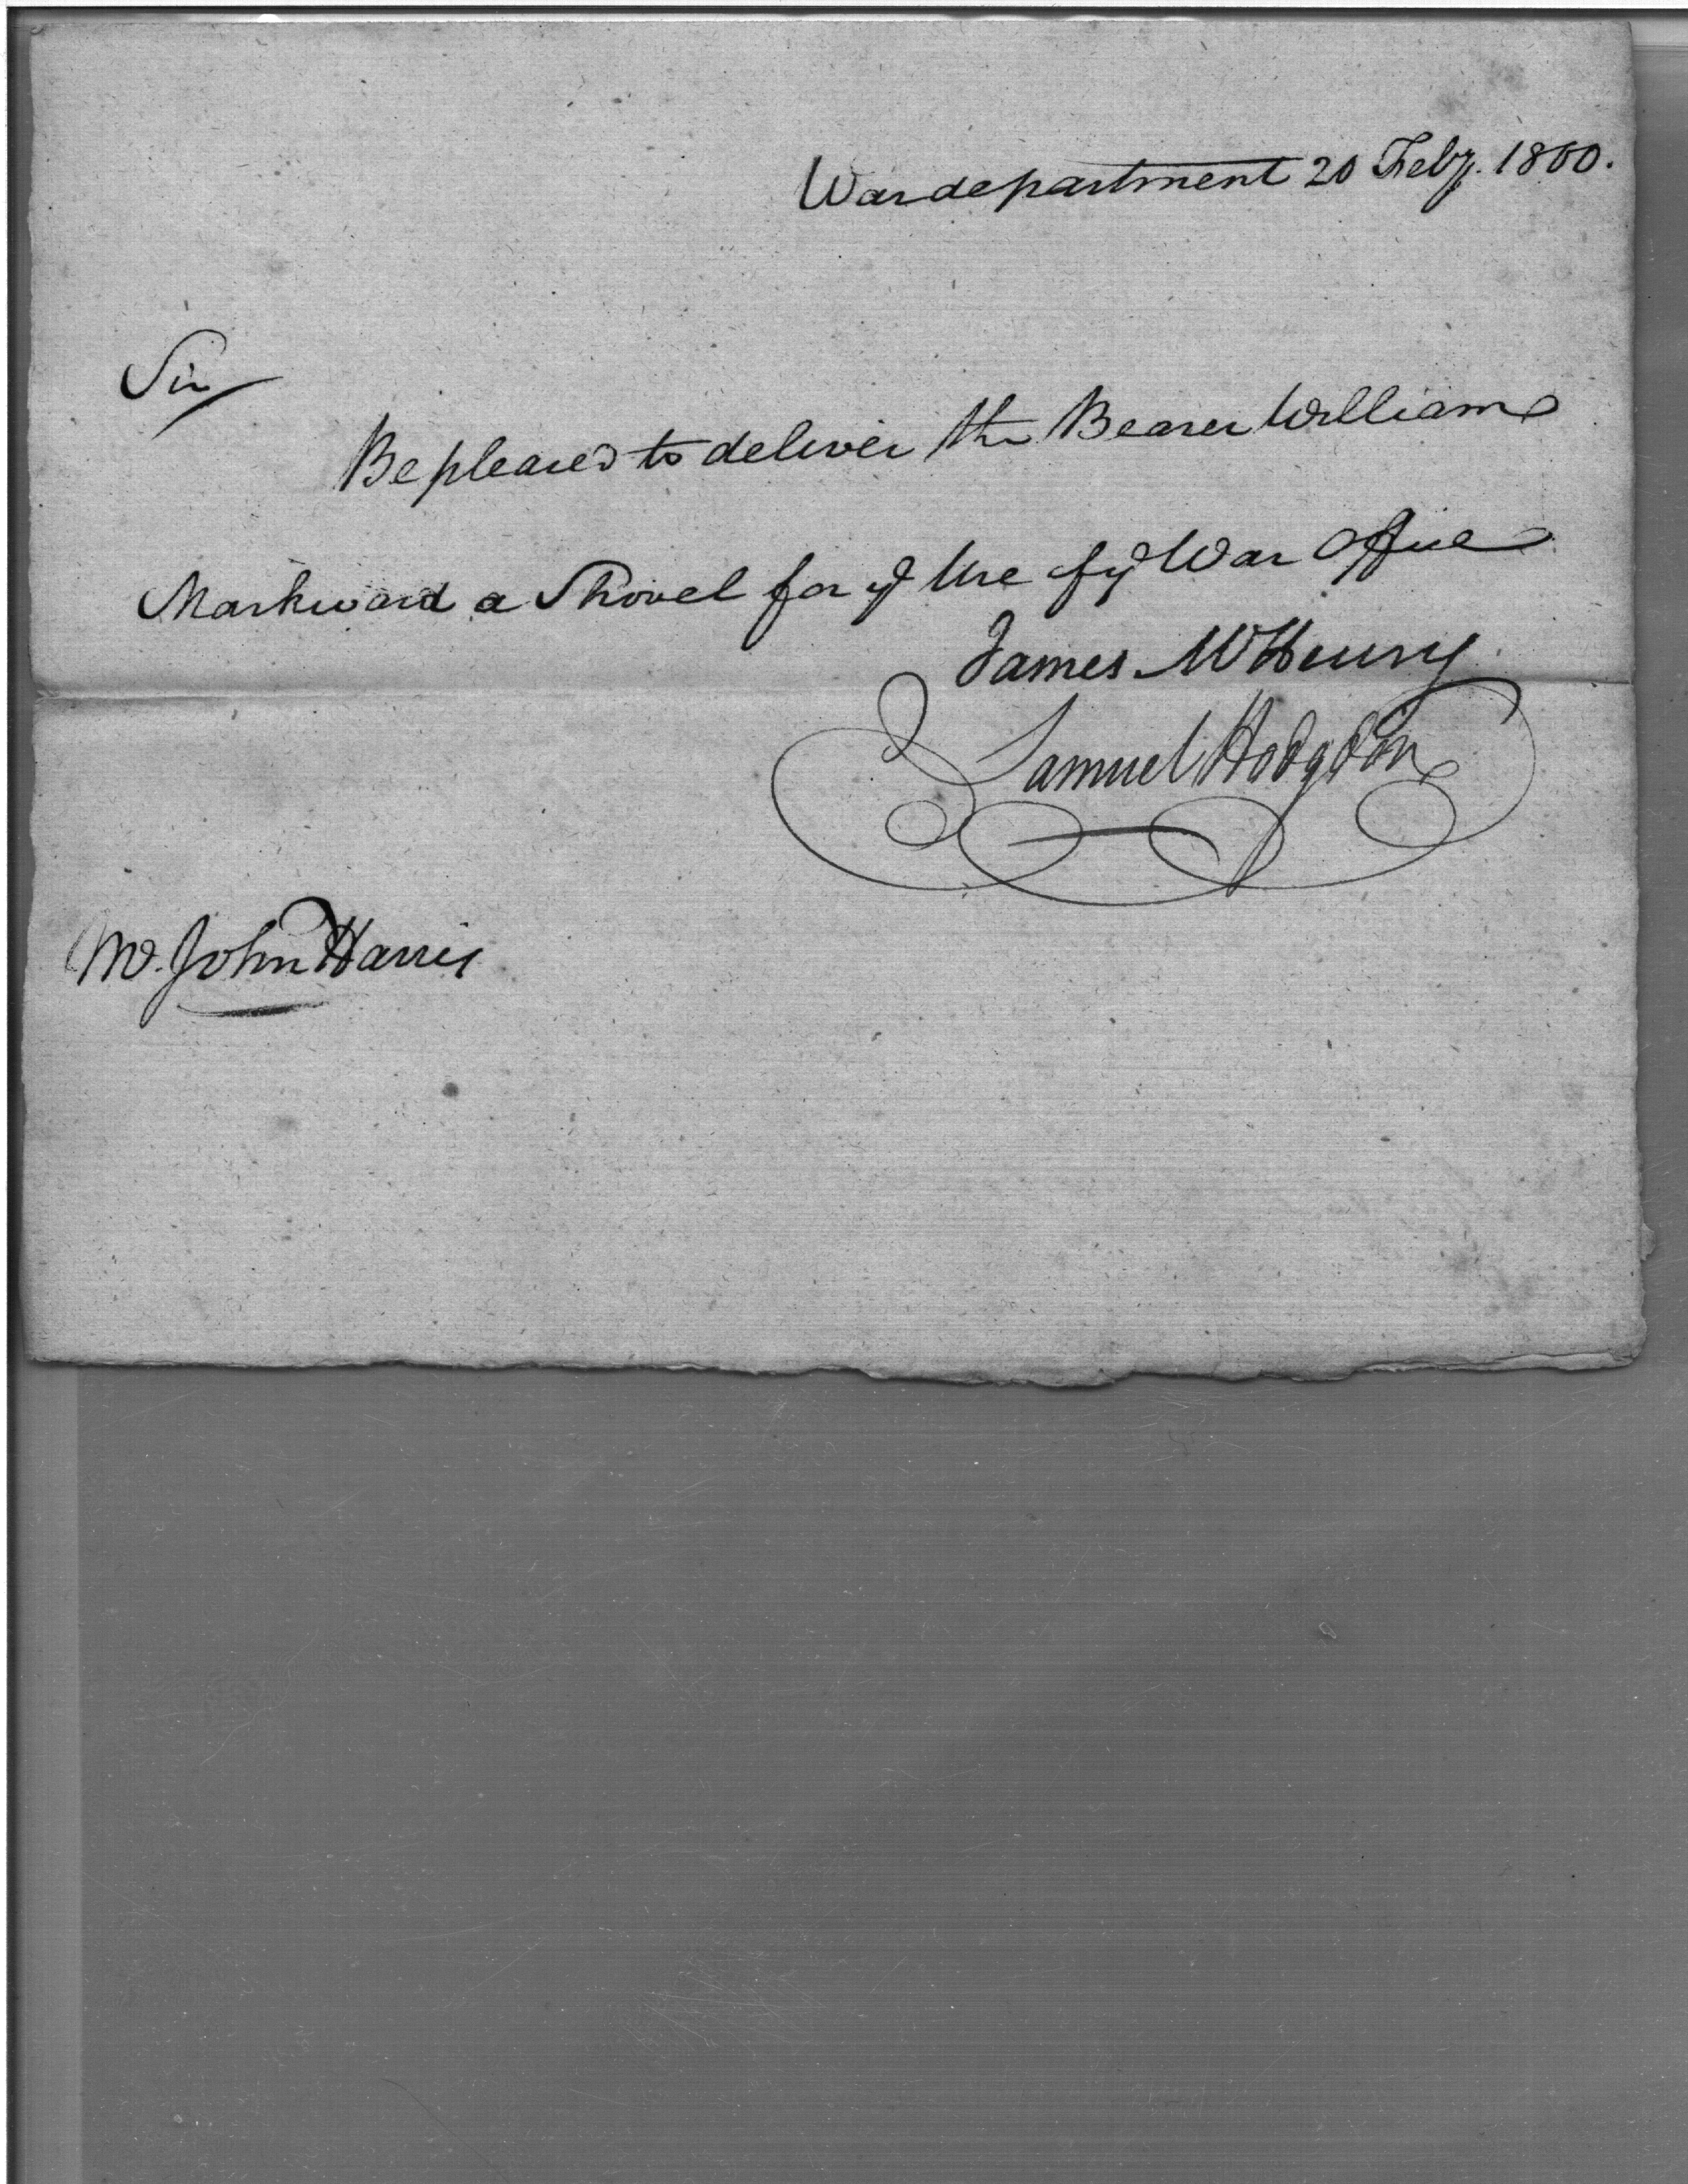 War department 20 Feby. 1800.
Sir
Be pleased to deliver the Bearer William
Markward a Shovel for ye Use of ye War Office
James McHenry
Samuel Hodgdon
Mr. John Harris